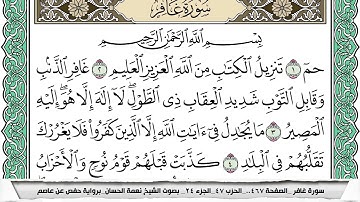 سورة غافر
بِسْمِ اللَّهِ الرَّحْمَٰنِ الرَّحِيمِ
حمٓ ١ تَنزِيلُ الْكِتَٰبِ مِنَ اللَّهِ الْعَزِيزِ الْعَلِيمِ ٢ غَافِرِ الذَّنۢبِ
وَقَابِلِ التَّوْبِ شَدِيدِ الْعِقَابِ ذِى الطَّوْلِ ۖ لَآ إِلَٰهَ إِلَّا هُوَ ۖ إِلَيْهِ
الْمَصِيرُ ٣ مَا يُجَٰدِلُ فِىٓ ءَايَٰتِ اللَّهِ إِلَّا الَّذِينَ كَفَرُوا۟ فَلَا يَغْرُرْكَ
تَقَلُّبُهُمْ فِى الْبِلَٰدِ ٤ كَذَّبَتْ قَبْلَهُمْ قَوْمُ نُوحٍ وَالْأَحْزَابُ
سورة غافر _ الصفحة ٤٦٧ _ الحزب ٤٧ _ الجزء ٢٤ _ بصوت الشيخ نعمة الحسان _ برواية حفص عن عاصم